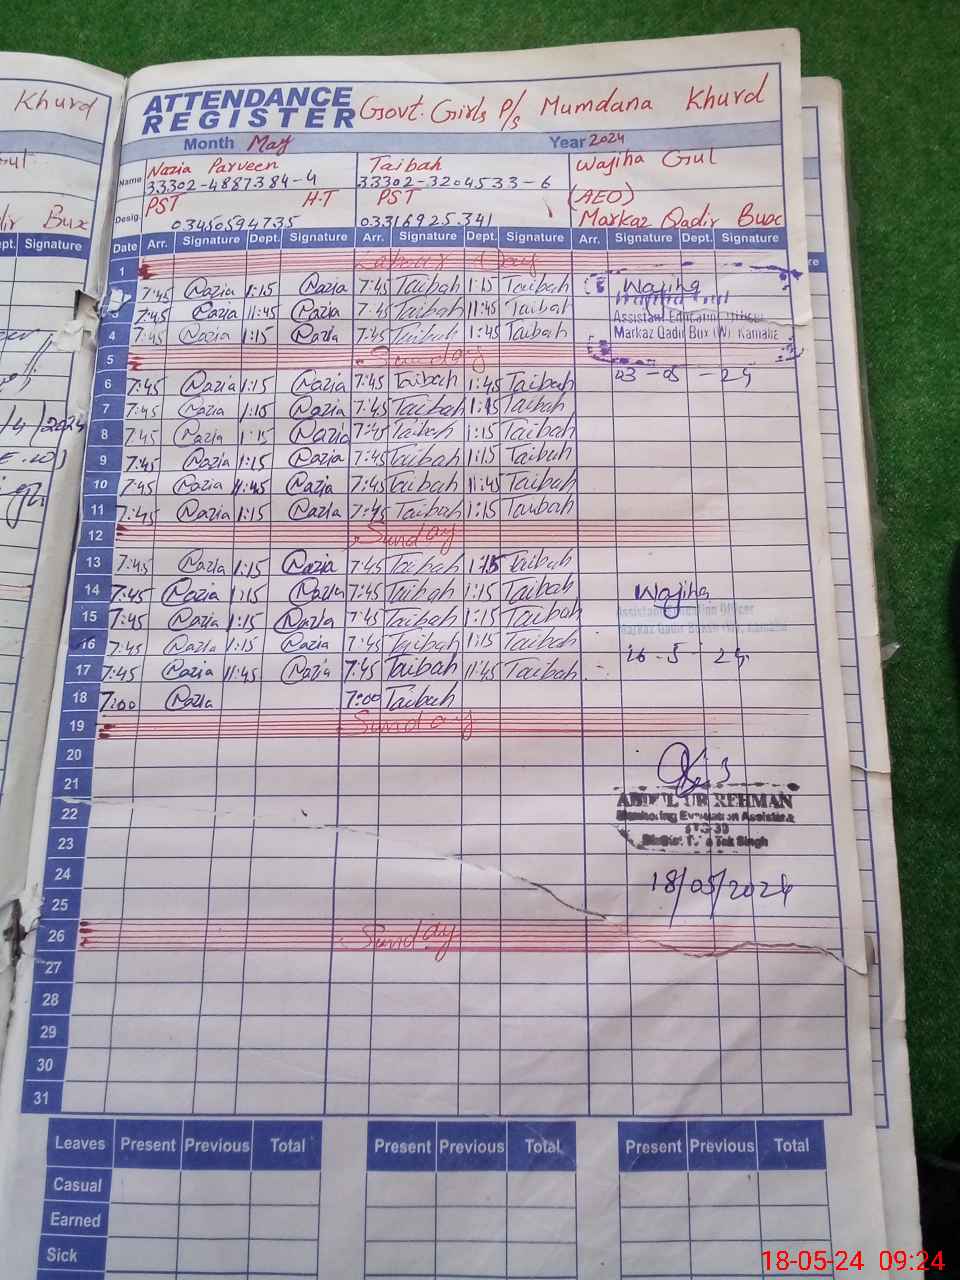 Khurd
ATTENDANCE REGISTER Govt. Girls P/s Mumdana Khurd
Month May Year 2024
Name Nazia Parveen Taibah Wajiha Gul
33302-4887384-4 33302-3204533-6
Desig. PST H.T PST (AEO)
03450594735 03316925341 Markaz Qadir Bux
Bux
ept. Signature
Date Arr. Signature Dept. Signature Arr. Signature Dept. Signature Arr. Signature Dept. Signature
1 Labour Day
7:45 Nazia 1:15 Nazia 7:45 Taibah 1:15 Taibah Wajiha
3 7:45 Nazia 11:45 Nazia 7:45 Taibah 11:45 Taibah Assistant Education Officer
4 7:45 Nazia 1:15 Nazia 7:45 Taibah 1:45 Taibah Markaz Qadir Bux (W) Kamalia
5 Sunday
03-05-24
6 7:45 Nazia 1:15 Nazia 7:45 Taibah 1:45 Taibah
7 7:45 Nazia 1:15 Nazia 7:45 Taibah 1:15 Taibah
8 7:45 Nazia 1:15 Nazia 7:45 Taibah 1:15 Taibah
9 7:45 Nazia 1:15 Nazia 7:45 Taibah 1:15 Taibah
10 7:45 Nazia 11:45 Nazia 7:45 Taibah 11:45 Taibah
11 7:45 Nazia 1:15 Nazia 7:45 Taibah 1:15 Taibah
12 Sunday
13 7:45 Nazia 1:15 Nazia 7:45 Taibah 1:15 Taibah
14 7:45 Nazia 1:15 Nazia 7:45 Taibah 1:15 Taibah Wajiha
15 7:45 Nazia 1:15 Nazia 7:45 Taibah 1:15 Taibah Assistant Education Officer
Markaz Qadir
16 7:45 Nazia 1:15 Nazia 7:45 Taibah 1:15 Taibah 16-5-24
17 7:45 Nazia 11:45 Nazia 7:45 Taibah 11:45 Taibah
18 7:00 Nazia 7:00 Taibah
19 Sunday
20
21
22 ABDUL UR REHMAN
Monitoring Evaluation Assistant
23 District Toba Tek Singh
24 18/05/2024
25
26 Sunday
27
28
29
30
31
Leaves Present Previous Total Present Previous Total Present Previous Total
Casual
Earned
Sick
18-05-24 09:24